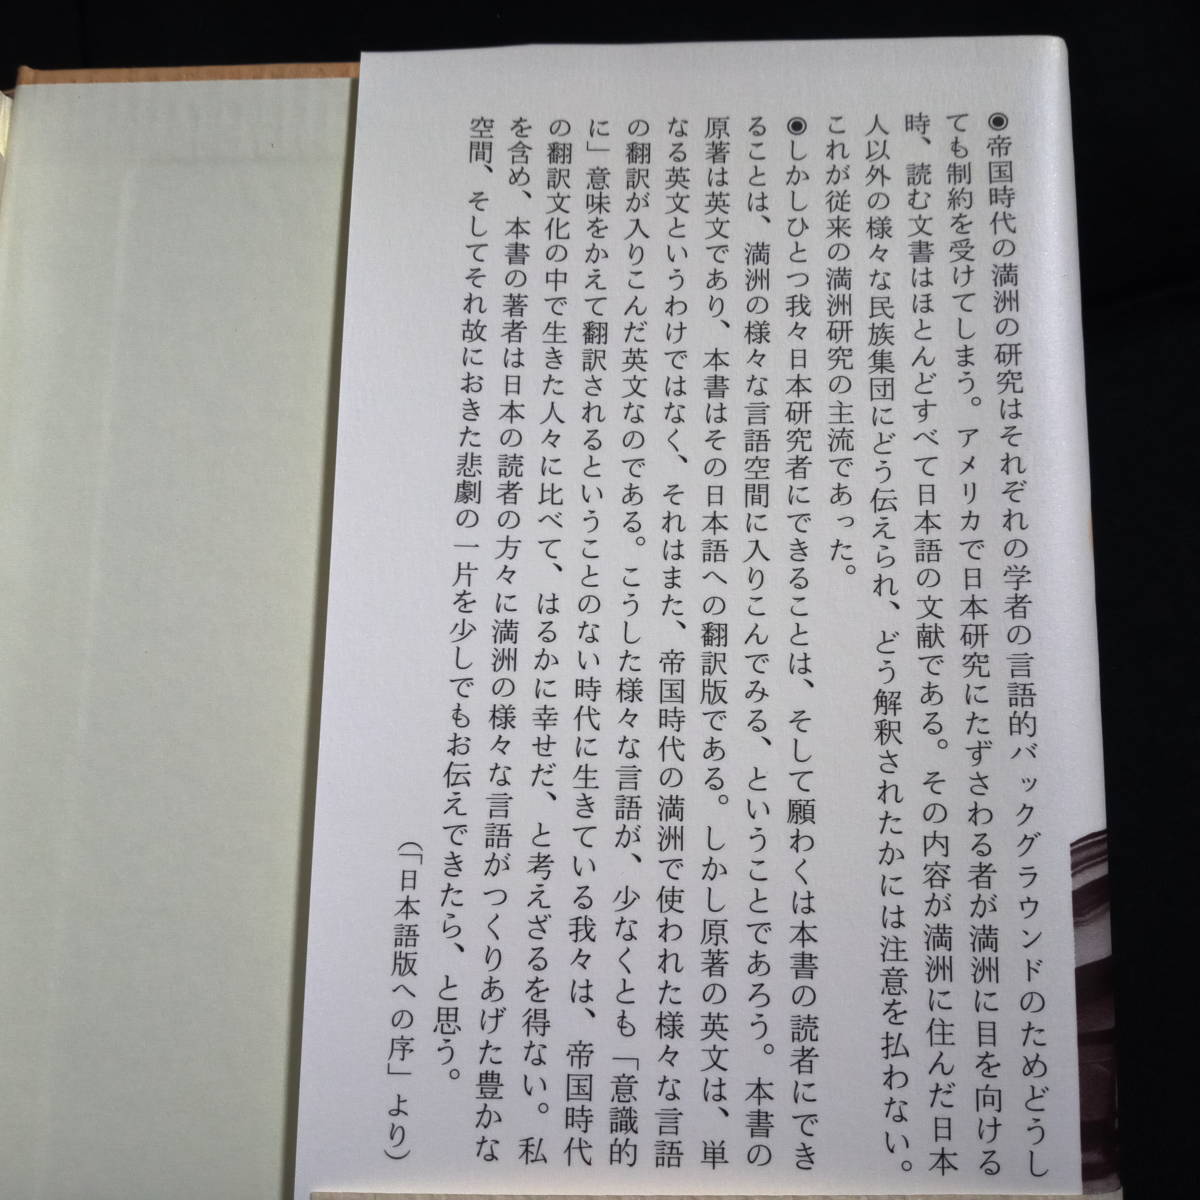 ◉帝国時代の満洲の研究はそれぞれの学者の言語的バックグラウンドのためどうし
ても制約を受けてしまう。アメリカで日本研究にたずさわる者が満洲に目を向ける
時、読む文書はほとんどすべて日本語の文献である。その内容が満洲に住んだ日本
人以外の様々な民族集団にどう伝えられ、どう解釈されたかには注意を払わない。
これが従来の満洲研究の主流であった。
◉しかしひとつ我々日本研究者にできることは、そして願わくは本書の読者にでき
ることは、満洲の様々な言語空間に入りこんでみる、ということであろう。本書の
原著は英文であり、本書はその日本語への翻訳版である。しかし原著の英文は、単
なる英文というわけではなく、それはまた、帝国時代の満洲で使われた様々な言語
の翻訳が入りこんだ英文なのである。こうした様々な言語が、少なくとも「意識的
に」意味をかえて翻訳されるということのない時代に生きている我々は、帝国時代
の翻訳文化の中で生きた人々に比べて、はるかに幸せだ、と考えざるを得ない。私
を含め、本書の著者は日本の読者の方々に満洲の様々な言語がつくりあげた豊かな
空間、そしてそれ故におきた悲劇の一片を少しでもお伝えできたら、と思う。
（「日本語版への序」より）